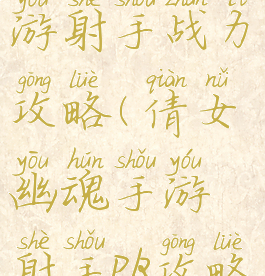 yóu shè shǒu zhàn lì
游射手战力
gōng lüè qiàn nǚ
攻略(倩女
yōu hún shǒu yóu
幽魂手游
shè shǒu gōng lüè
射手PK攻略